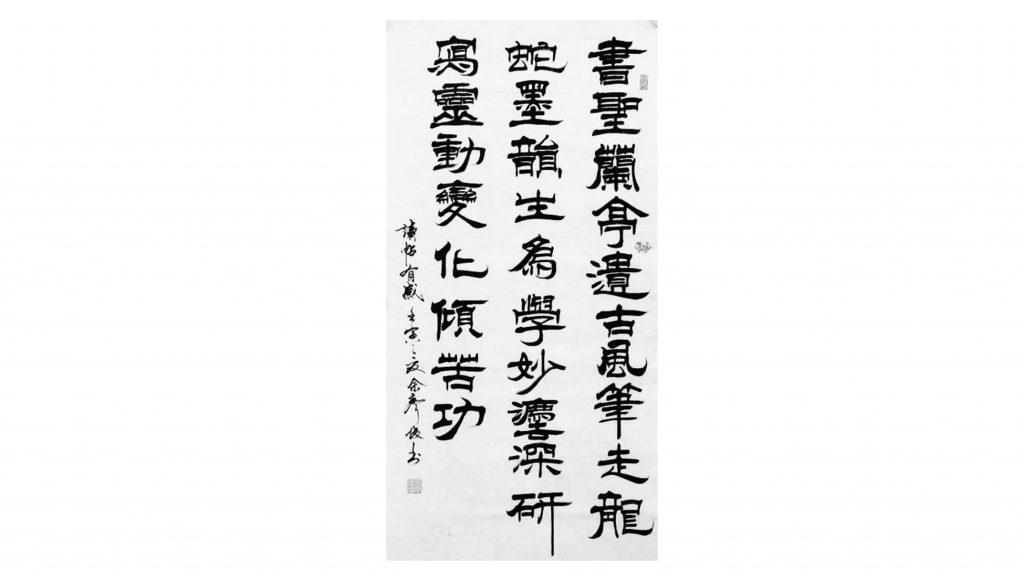 書聖蘭亭遺古風筆走龍
蛇墨韻生為學妙灋深研
寫靈動變化傾苦功
讀帖有感壬寅之夏余俊书